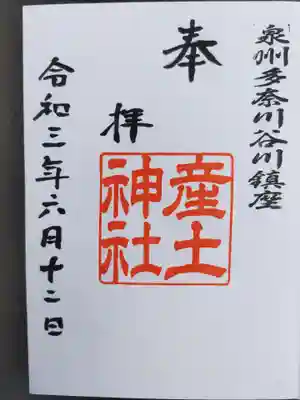 泉州多奈川谷川鎮座
奉
拝
産土
神社
令和三年六月十二日